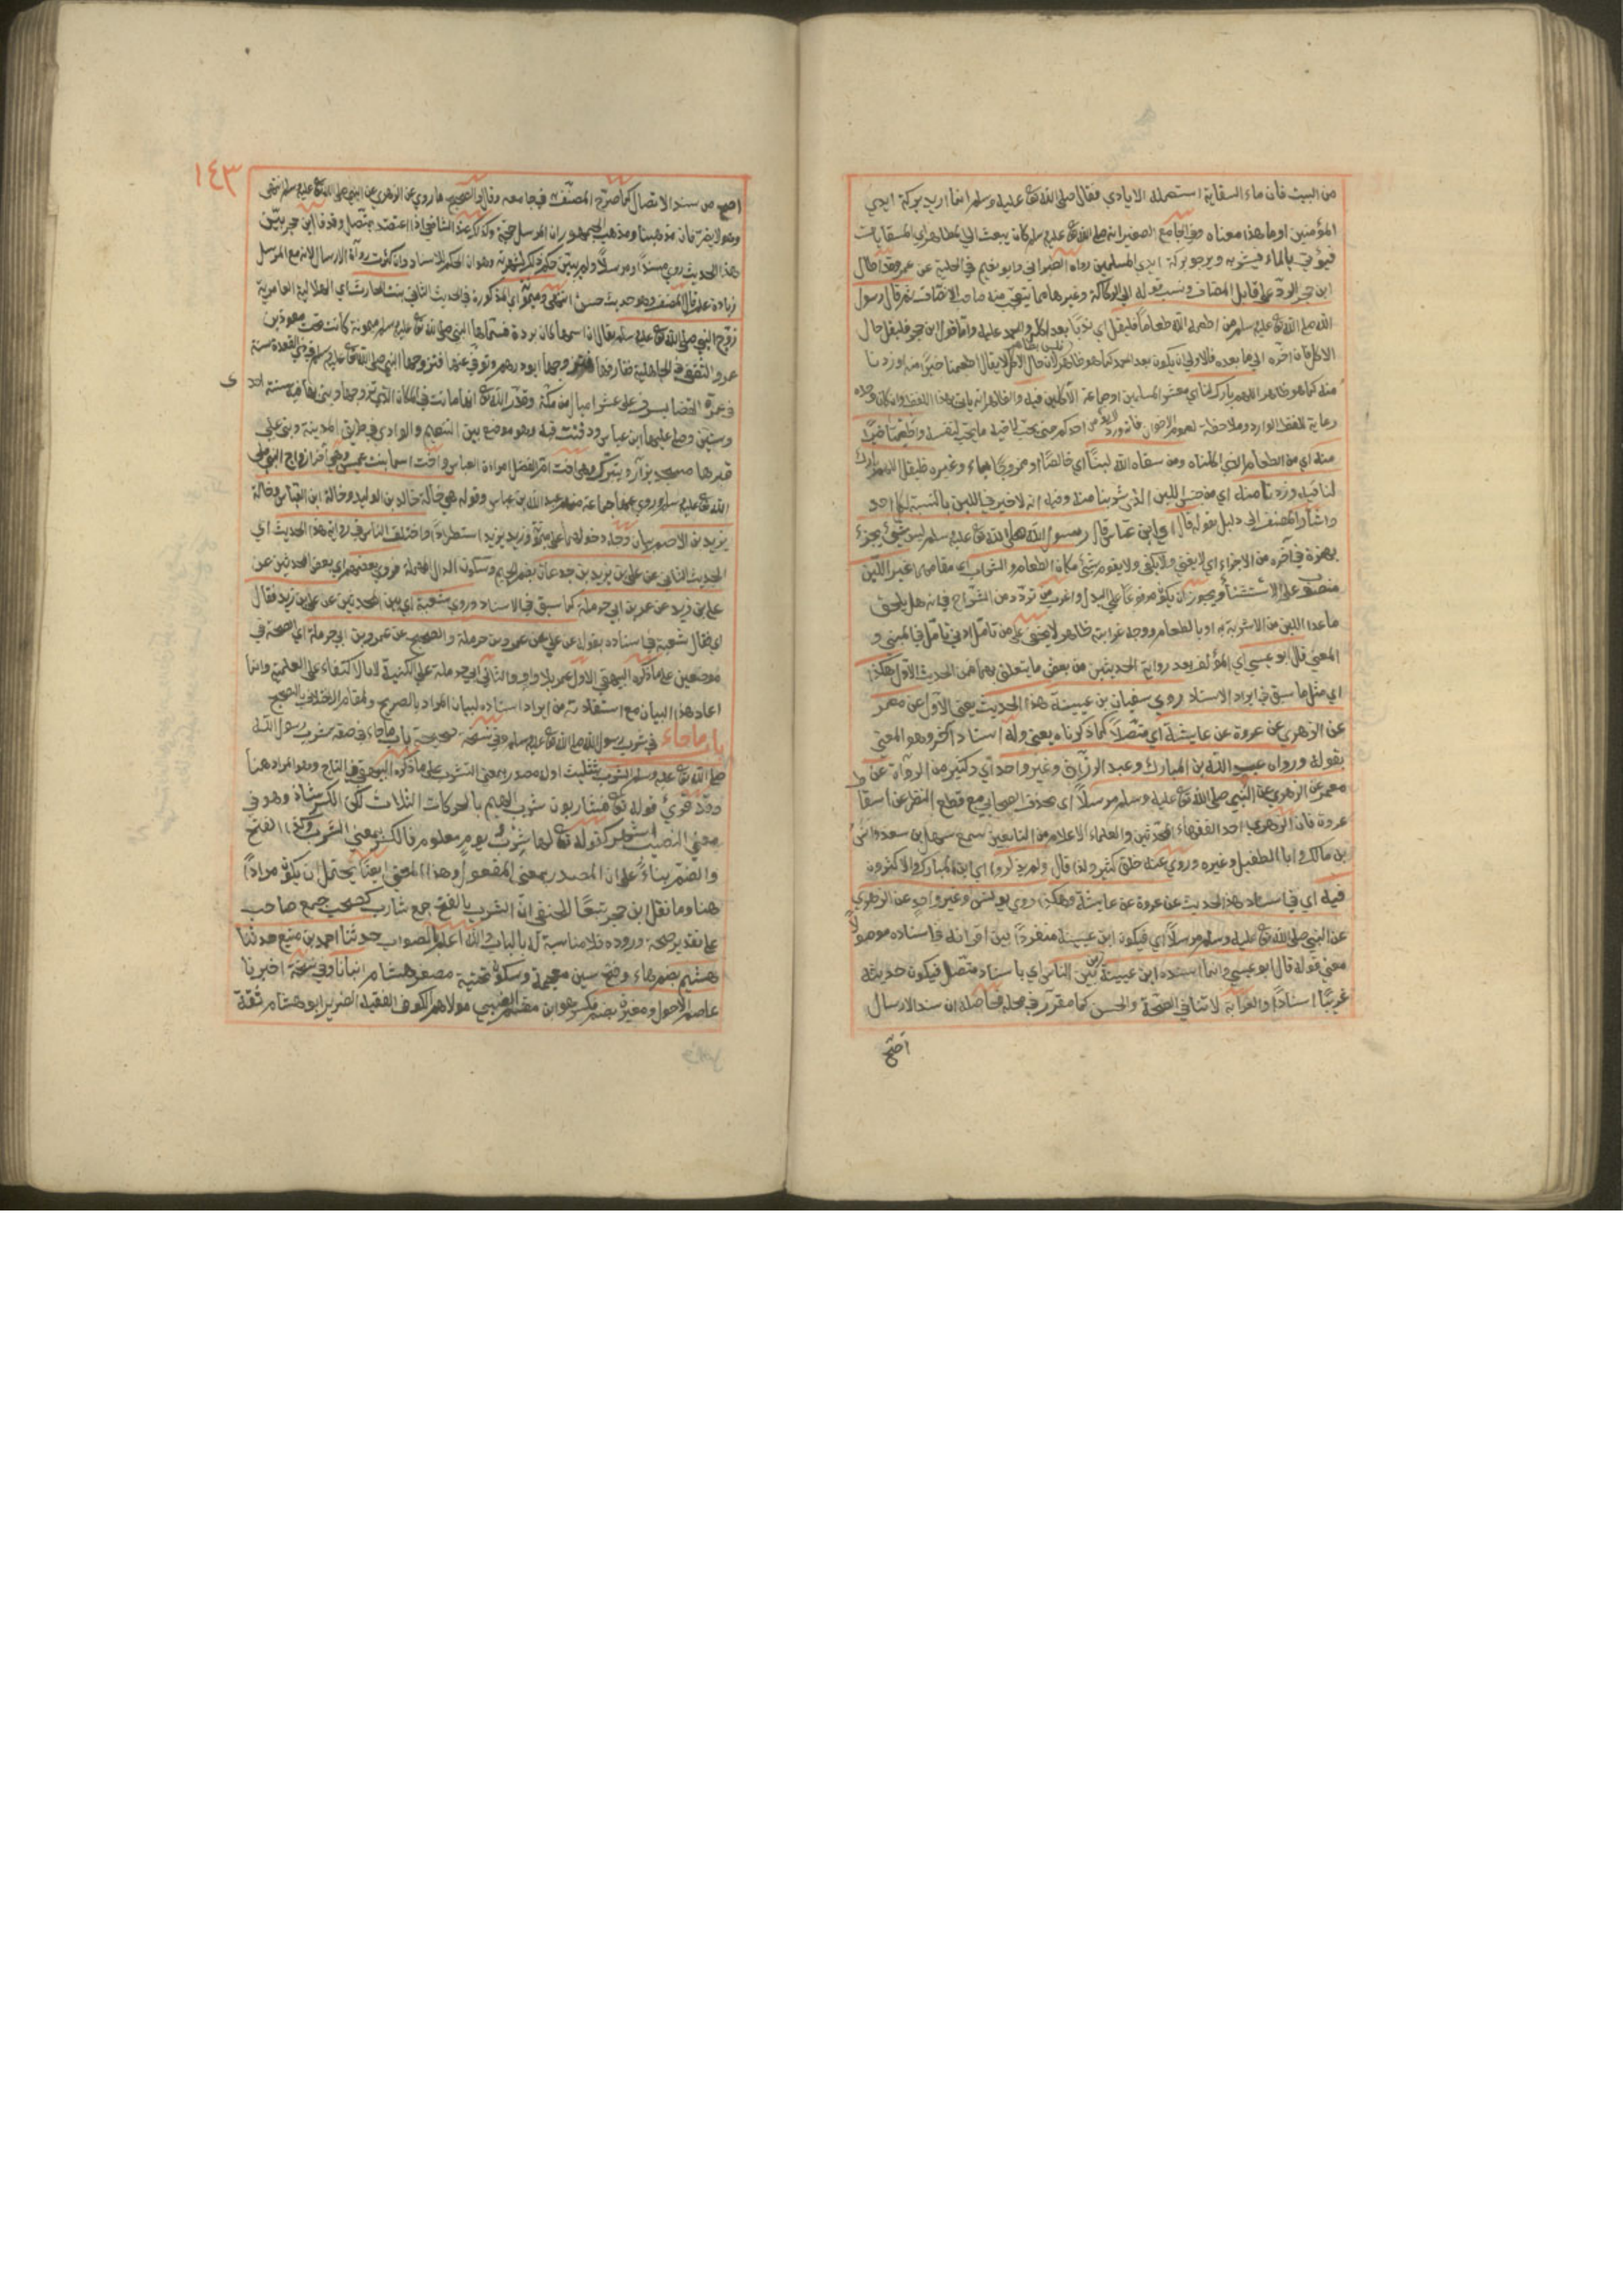 من البيت فان ماء السقاية استعمله الايادي فقال صلى الله تع عليه وسلم انما اريد بركة ايدي
المؤمنين او ما هذا معناه وفي الجامع الصغير انه صلى الله تع عليه وسلم كان يبعث الى المطاهر اي السقايات
فيؤتى بالماء فيشربه ويرجو بركة ايدي المسلمين رواه الطبراني وابو نعيم في الحلية عن عمر وقد اطال
ابن حجر الرد على قايل المضاف ونسب قوله الى الركاكة وغيرها مما يتعجب منه صاحب الانصاف ثم قال رسول
الله صلى الله تع عليه وسلم من اطعمه الله طعاما فليقل اي ندبا بعد اكله والحمد عليه واما قول ابن حجر فليقل حال
الاكل فان اخره الى ما بعده فالاولى ان يكون بعد الحمد كما هو ظاهر فليس بظاهر لان حال الاكل لا يقال اطعمنا خيرا منه او زدنا
منه كما هو ظاهر اللهم بارك لنا اي معشر المسلمين او جماعة الآكلين فيه والظاهر انه ياتي بهذا اللفظ وان كان وحده
رعاية للفظ الوارد وملاحظة لعموم الاخوان فانه ورد لا يؤمن احدكم حتى يحب لاخيه ما يحب لنفسه واطعمنا خيرا
منه اي من الطعام الذي اكلناه ومن سقاه الله لبنا اي خالصا او ممزوجا بماء وغيره فليقل اللهم بارك
لنا فيه وزدنا منه اي من جنس اللبن الذي شربنا منه وفيه انه لا خير في اللبن بالنسبة لكل احد
واشار المصنف الى دليل بقوله قال اي ابن عباس قال رسول الله صلى الله تع عليه وسلم ليس شيء يجزئ
بهمزة في آخره من الاجزاء اي لا يغني ولا يكفي ولا يقوم شيء مكان الطعام والشراب اي مقامهما غير اللبن
منصوب على الاستثناء ويجوز ان يكون مرفوعا على البدل واغرب من تردد من الشراح في انه هل يلحق
ما عدا اللبن من الاشربة به او بالطعام ووجه غرابته ظاهر لا يخفى على من تامل ادنى تامل في المبنى و
المعنى قال ابو عيسى اي المؤلف بعد رواية الحديثين من بعض ما يتعلق بهما من الحديث الاول هكذا
اي مثل ما سبق في ايراد الاسناد روى سفيان بن عيينة هذا الحديث يعني الاول عن معمر
عن الزهري عن عروة عن عايشة اي متصلا كما ذكرناه يعني وله اسناد آخر وهو المعنى
بقوله ورواه عبد الله بن المبارك وعبد الرزاق وغير واحد اي وكثير من الرواة عن
معمر عن الزهري عن النبي صلى الله تع عليه وسلم مرسلا اي بحذف الصحابي مع قطع النظر عن اسقاط
عروة فان الزهري احد الفقهاء والمحدثين والعلماء الاعلام من التابعين سمع سهل بن سعد وانس
بن مالك وابا الطفيل وغيره وروى عنه خلق كثير ولذا قال ولم يذكروا اي ابن المبارك والاكثرون
فيه اي في اسناد هذا الحديث عن عروة عن عايشة وهكذا روى يونس وغير واحد عن الزهري
عن النبي صلى الله تع عليه وسلم مرسلا اي فيكون ابن عيينة منفردا بين اقرانه في اسناده موصولا
معنى قوله قال ابو عيسى وانما اسنده ابن عيينة من بين الناس اي باسناد متصل فيكون حديثه
غريبا اسنادا والغرابة لا تنافي الصحة والحسن كما مقرر في محله فحاصله ان سند الارسال
اصح
١٤٣
اصح من سند الاتصال كما صرح المصنف في جامعه وقال والصحيح ما روي عن الزهري عن النبي صلى الله تع عليه وسلم
وهو لا يضر فان مذهبنا ومذهب الجمهور ان المرسل حجة وكذلك عند الشافعي اذا اعتضد بمتصل
هذا الحديث روي مسندا ومرسلا ولم يبين حكم ذكر لشهرته وهو ان الحكم للاسناد وان كثرت رواة الارسال لان مع المرسل
زيادة علم قال المصنف وهو حديث حسن انتهى وميمونة اي المذكورة في الحديث الثاني بنت الحارث اي الهلالية العامرية
زوج النبي صلى الله تع عليه وسلم يقال ان اسمها كان برة فسماها النبي صلى الله تع عليه وسلم ميمونة كانت تحت مسعود بن
عمرو الثقفي في الجاهلية ففارقها فتزوجها ابو درهم وتوفي عنها فتزوجها النبي صلى الله تع عليه وسلم في ذي القعدة سنة
في عمرة القضا بسرف على عشرة اميال من مكة وقدر الله تع انها ماتت في المكان الذي تزوجها وبنى بها فيه سنة احدى
وستين وصلى عليها ابن عباس ودفنت فيه وهو موضع بين التنعيم والوادي في طريق المدينة وبني على
قبرها مسجد يزار ويتبرك وهي اخت ام الفضل امراة العباس واخت اسما بنت عميس وهي آخر ازواج النبي صلى
الله تع عليه وسلم وروى عنها جماعة منهم عبد الله بن عباس وقوله هي خالة خالد بن الوليد وخالة ابن العباس وخالة
يزيد بن الاصم بيان وجه دخولهما على ميمونة وزيد يزيد استطرادا واختلف الناس في رواية هذا الحديث اي
الحديث الثاني عن علي بن يزيد بن جدعان بضم الجيم وسكون الدال المهملة فروى بعضهم اي بعض المحدثين عن
علي بن زيد عن عمر بن ابي حرملة كما سبق في الاسناد وروى شعبة اي من المحدثين عن علي بن زيد فقال
اي فقال شعبة في اسناده بقوله عن علي عن عمرو بن حرملة والصحيح عن عمر بن ابي حرملة اي الصحة في
موضعين على ما ذكره البيهقي الاول عمر بلا واو والثاني ابي حرملة على الكنية لا بالاكتفاء على العلمية وانما
اعاد هذا البيان مع استفادته من ايراد اسناده لبيان المراد بالصريح
باب ما جاء في شرب رسول الله صلى الله تع عليه وسلم وفي نسخة صحيحة باب ما جاء في صفة شرب رسول الله
صلى الله تع عليه وسلم الشرب بتثليث اوله مصدر بمعنى التشرب على ما ذكره البيهقي في التاج وهو المراد هنا
وقد قرئ قوله تع فشاربون شرب الهيم بالحركات الثلاث لكن الكسر شاذ وهو في
معنى النصيب اشهر كقوله تع لها شرب ولكم شرب يوم معلوم فالكسر بمعنى الشرب وكذا الفتح
والضم بناء على ان المصدر بمعنى المفعول وهذا المعنى ايضا يحتمل ان يكون مرادا
هنا وما نقل ابن حجر تبعا للحنفي ان الشرب بالفتح جمع شارب كصحب جمع صاحب
على تقدير صحة وروده فلا مناسبة له بالباب والله اعلم بالصواب حدثنا احمد بن منيع حدثنا
هشيم بضم هاء وفتح شين معجمة وسكون تحتية مصغر هشام انبانا وفي نسخة اخبرنا
عاصم الاحول ومغيرة بضم ميم وكسر هو ابن مقسم الضبي مولاهم الكوفي الفقيه الضرير ابو هشام ثقة